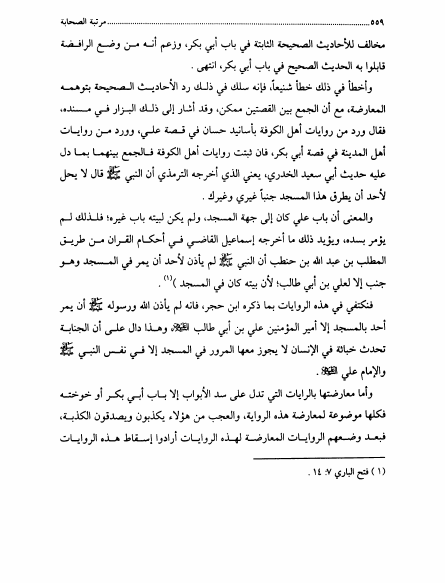 مرتبة الصحابة ........................................................................ ٥٥٩
مخالف للأحاديث الصحيحة الثابتة في باب أبي بكر، وزعم أنه من وضع الرافضة
قابلوا به الحديث الصحيح في باب أبي بكر، انتهى .
وأخطأ في ذلك خطأ شنيعاً، فإنه سلك في ذلك رد الأحاديث الصحيحة بتوهمه
المعارضة، مع أن الجمع بين القصتين ممكن، وقد أشار إلى ذلك البزار في مسنده،
فقال ورد من روايات أهل الكوفة بأسانيد حسان في قصة علي، وورد من روايات
أهل المدينة في قصة أبي بكر، فان ثبتت روايات أهل الكوفة فالجمع بينهما بما دل
عليه حديث أبي سعيد الخدري، يعني الذي أخرجه الترمذي أن النبي ﷺ قال لا يحل
لأحد أن يطرق هذا المسجد جنباً غيري وغيرك .
والمعنى أن باب علي كان إلى جهة المسجد، ولم يكن لبيته باب غيره؛ فلذلك لم
يؤمر بسده، ويؤيد ذلك ما أخرجه إسماعيل القاضي في أحكام القران من طريق
المطلب بن عبد الله بن حنطب أن النبي ﷺ لم يأذن لأحد أن يمر في المسجد وهو
جنب إلا لعلي بن أبي طالب؛ لأن بيته كان في المسجد )(١) .
فنكتفي في هذه الروايات بما ذكره ابن حجر، فانه لم يأذن الله ورسوله ﷺ أن يمر
أحد بالمسجد إلا أمير المؤمنين علي بن أبي طالب، وهذا دال على أن الجنابة
تحدث خباثة في الإنسان لا يجوز معها المرور في المسجد إلا في نفس النبي ﷺ
والإمام علي .
وأما معارضتها بالرايات التي تدل على سد الأبواب إلا باب أبي بكر أو خوخته
فكلها موضوعة لمعارضة هذه الرواية، والعجب من هؤلاء يكذبون ويصدقون الكذبة،
فبعد وضعهم الروايات المعارضة لهذه الروايات أرادوا إسقاط هذه الروايات
(١) فتح الباري ٧: ١٤ .